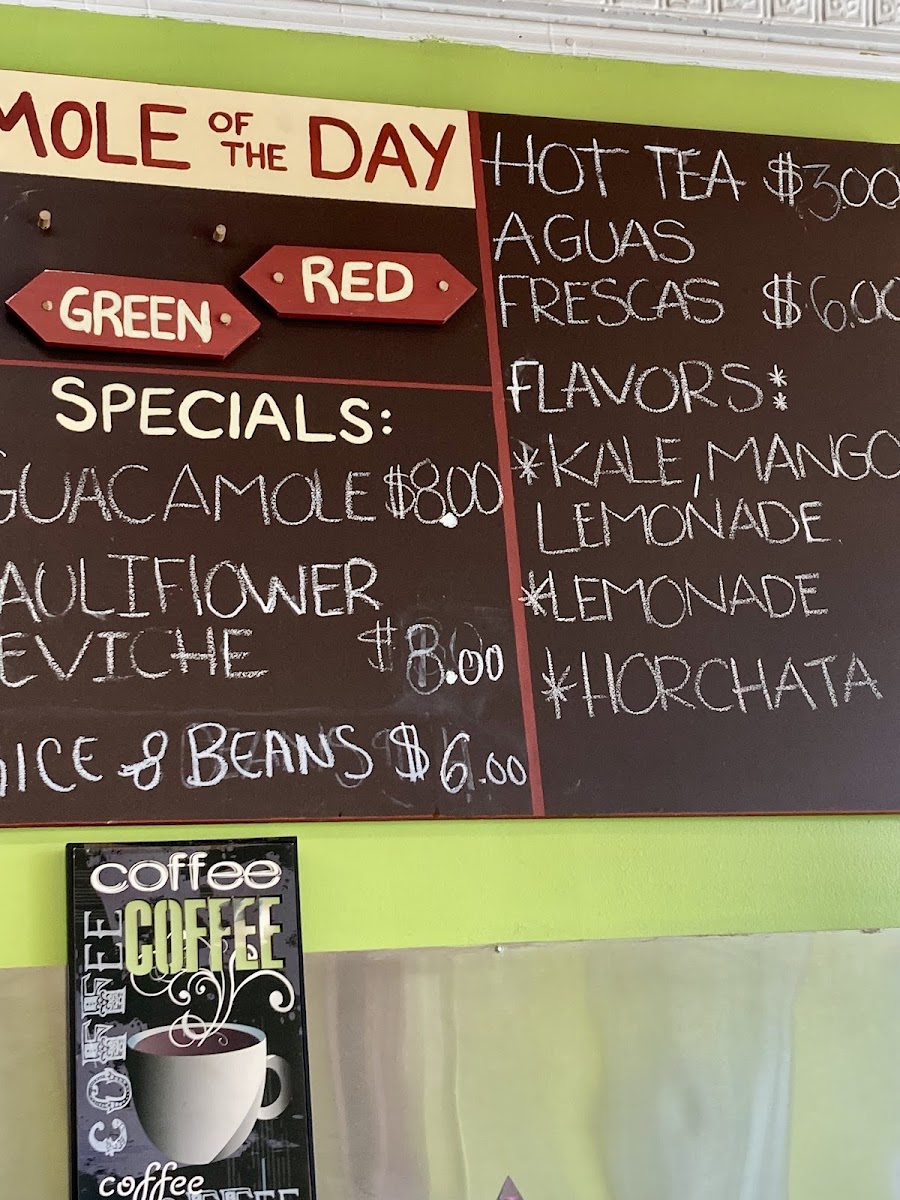 MOLE OF THE DAY
GREEN
RED
SPECIALS:
GUACAMOLE $8.00
AULIFLOWER
EVICHE $8.00
ICE & BEANS $6.00
HOT TEA $3.00
AGUAS
FRESCAS $6.00
FLAVORS:
*KALE, MANGO
LEMONADE
*LEMONADE
*HORCHATA
coffee
COFFEE
COFFEE
coffee